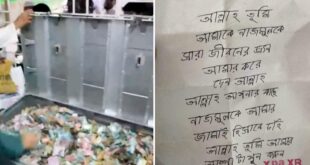 আল্লাহ তুমি
আমাকে নাজমুলকে
সারা জীবনের জন্য
আমার করে
দেন আল্লাহ
আল্লাহ আপনার কাছে
নাজমুলকে আমার
জামাই হিসাবে চাই
আল্লাহ তুমি আমার